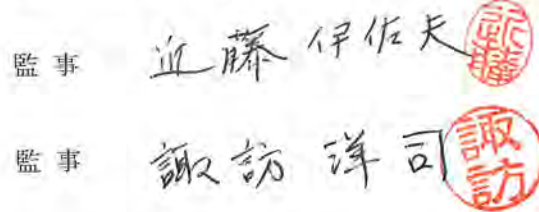 監事 近藤伊佐夫 近藤
監事 諏訪洋司 諏訪